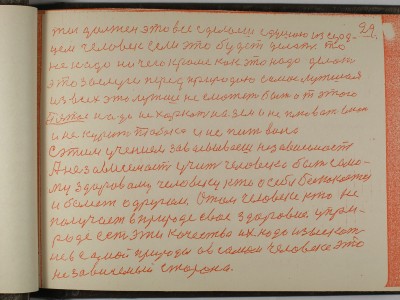 29.
ты должен это все сделать с душою из серд-
цем человек если это будет делать. то
не надо ничего кроме как это надо делать
это заслуги перед природою самая лучшая
из всех это лучше не сможет быть от этого
надо не харкат на землю не плеват
и не курить табака и не пит вина
С этим учением завоевываем независимость
А независимость учит человека быть само-
му здоровому человеку кто о себе беспокоится
и болеет о другом. Этот человек кто не
получает в природе свое здоровие. у при-
роде есть эти качества их надо извлекат
не в самой природы а в самом человеке это
независимый сторона.